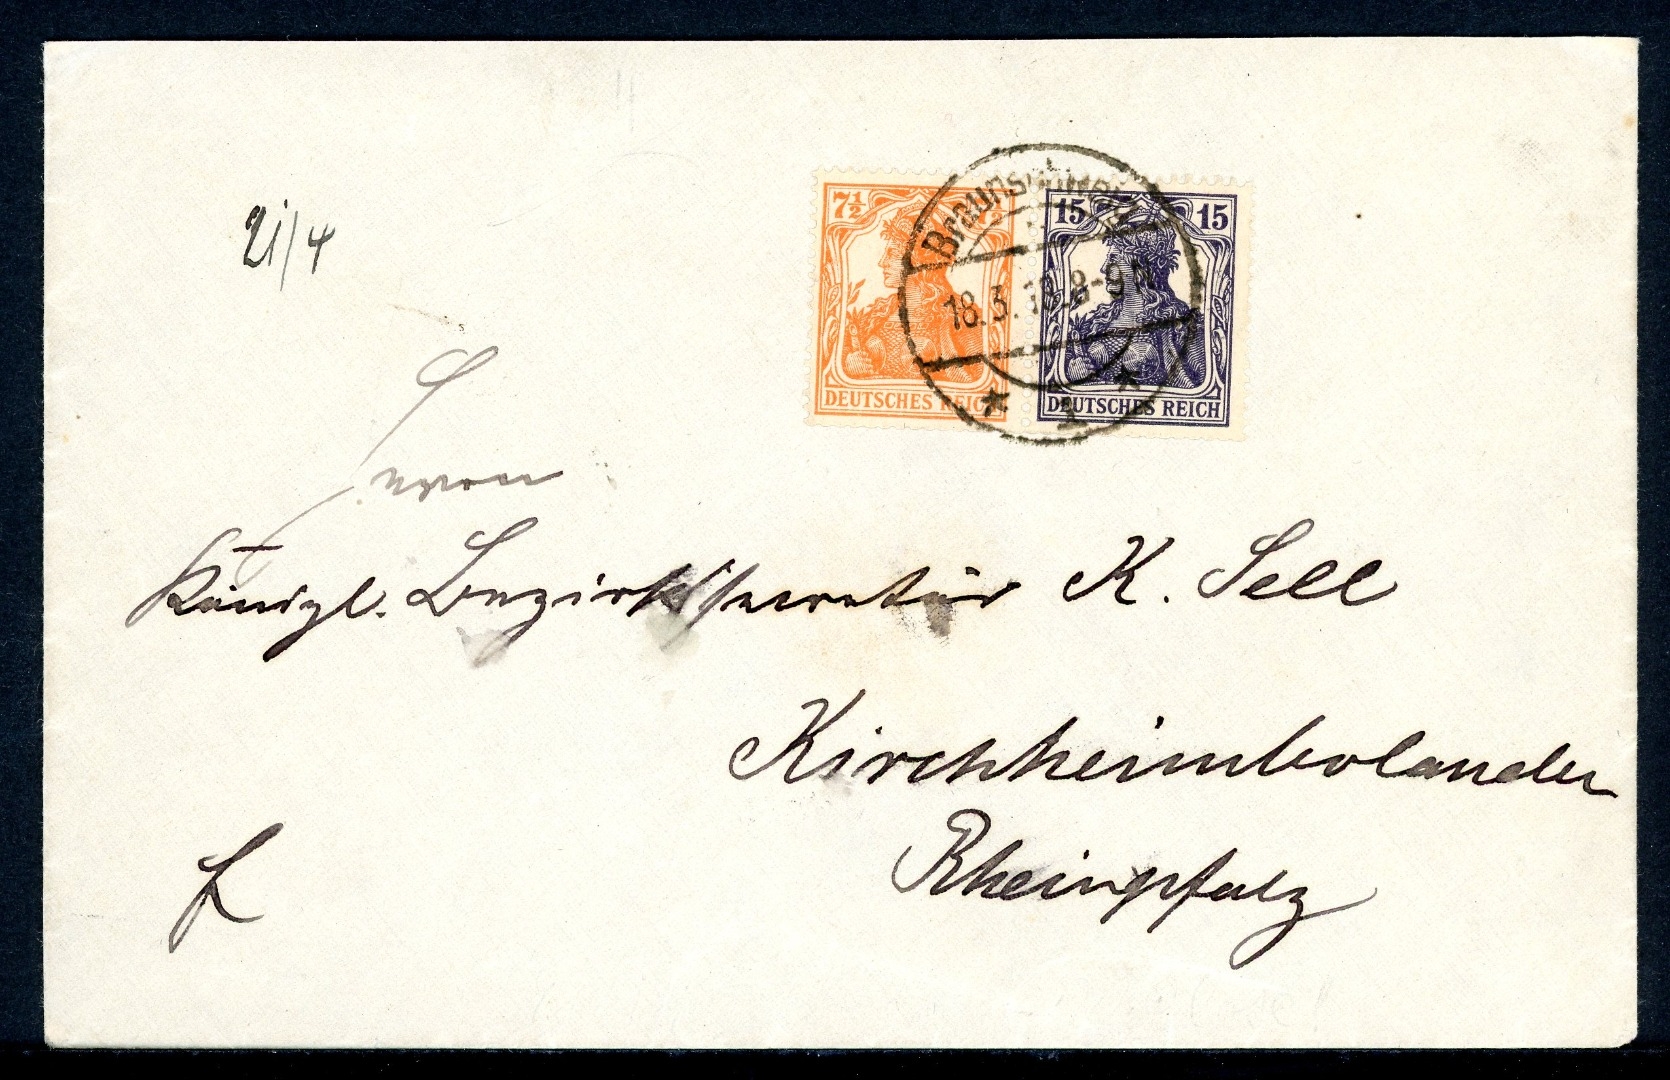 7½
15 15
DEUTSCHES REICH
DEUTSCHES REICH
Braunschweig
18.3.18.8-9N
* 1 *
Herrn
Königl. Bezirkssecretär K. Sell
Kirchheimbolanden
Rheinpfalz